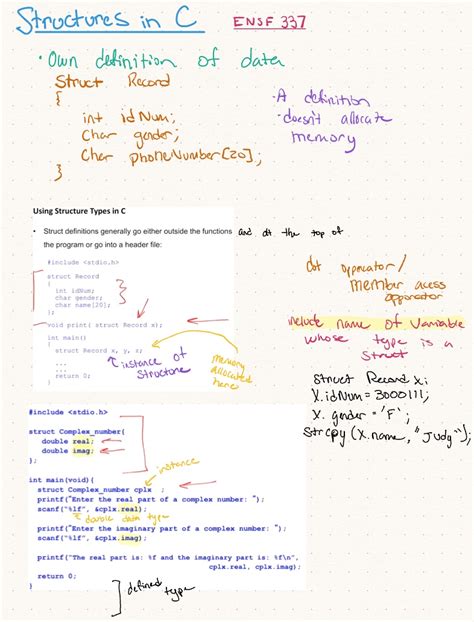 Structures in C ENSF 337
• Own definition of data
Struct Record
{
int idNum;
Char gender;
Char phoneNumber[20];
}
• A definition
• doesn't allocate
memory
Using Structure Types in C
• Struct definitions generally go either outside the functions and at the top of
the program or go into a header file:
#include <stdio.h>
struct Record
{
int idNum;
char gender;
char name[20];
};
void print( struct Record x);
int main()
{
struct Record x, y, z;
...
...
return 0;
}
instance of
Structure
memory
allocated
here
dot opperator/
member acess
opperator
include name of Variable
whose type is a
Struct
Struct Record x;
X.idNum = 3000111;
X.gender = 'F';
Strcpy (X.name, "Judy");
#include <stdio.h>
struct Complex_number{
double real;
double imag;
};
instance
int main(void){
struct Complex_number cplx ;
printf("Enter the real part of a complex number: ");
scanf("%lf", &cplx.real);
double data type
printf("Enter the imaginary part of a complex number: ");
scanf("%lf", &cplx.imag);
printf("The real part is: %f and the imaginary part is: %f\n",
cplx.real, cplx.imag);
return 0;
}
defined
type